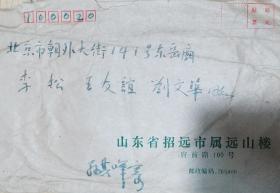 100020
北京市朝外大街141号东岳庙
李松 王友谊 刘文华
山东省招远市属远山楼
府前路100号
邮政编码:265400